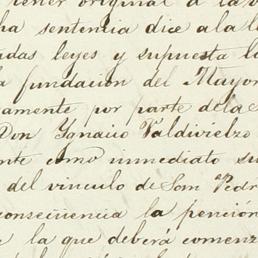 tener original a la v
ha sentencia dice a la l
adas leyes y supuesta la
a fundacion del Mayor
camente por parte de la S
Don Ygnacio Valdivielzo
nte como inmediato su
del vinculo de San Pedr
consecuencia la pension
e la que deberá comenz